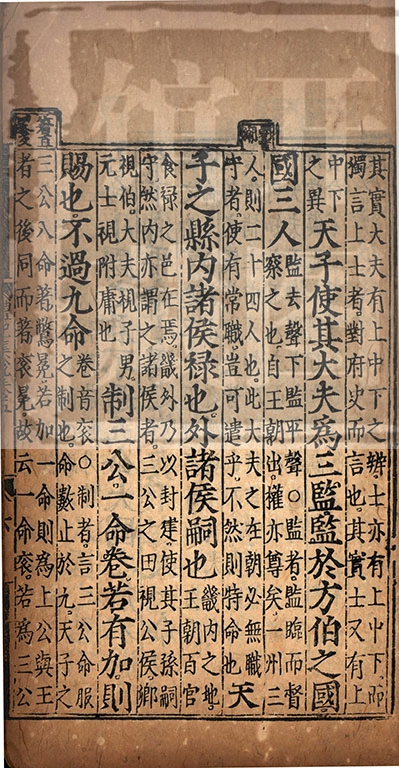 其實大夫有上中下之辨。士亦有上中下。
獨言上士者。對府史而言也。其實士又有上
中下
之異
天子使其大夫爲三監監於方伯之國
國三人
監去聲下監平聲。○監者。監臨而督
察之也。自王朝出。權亦尊矣。一州三
人。則二十四人也。此大夫之在朝必無職
守者。使有常職。豈可遣乎。不然則特命也
天
子之縣内諸侯禄也。外諸侯嗣也
畿内之地。
王朝百官
食禄之邑在焉。畿外乃以封建。使其子孫嗣
守。然内亦謂之諸侯者。三公之田視公侯。鄉
視伯。大夫視子男。
元士視附庸也
制三公一命卷。若有加。則
賜也。不過九命
卷音衮。○制者。言三公命服
之制也。命數止於九。天子之
三公八命著鷩冕。若加一命。則爲上公。與王
者之後同而著衮冕。故云一命衮。若爲三公